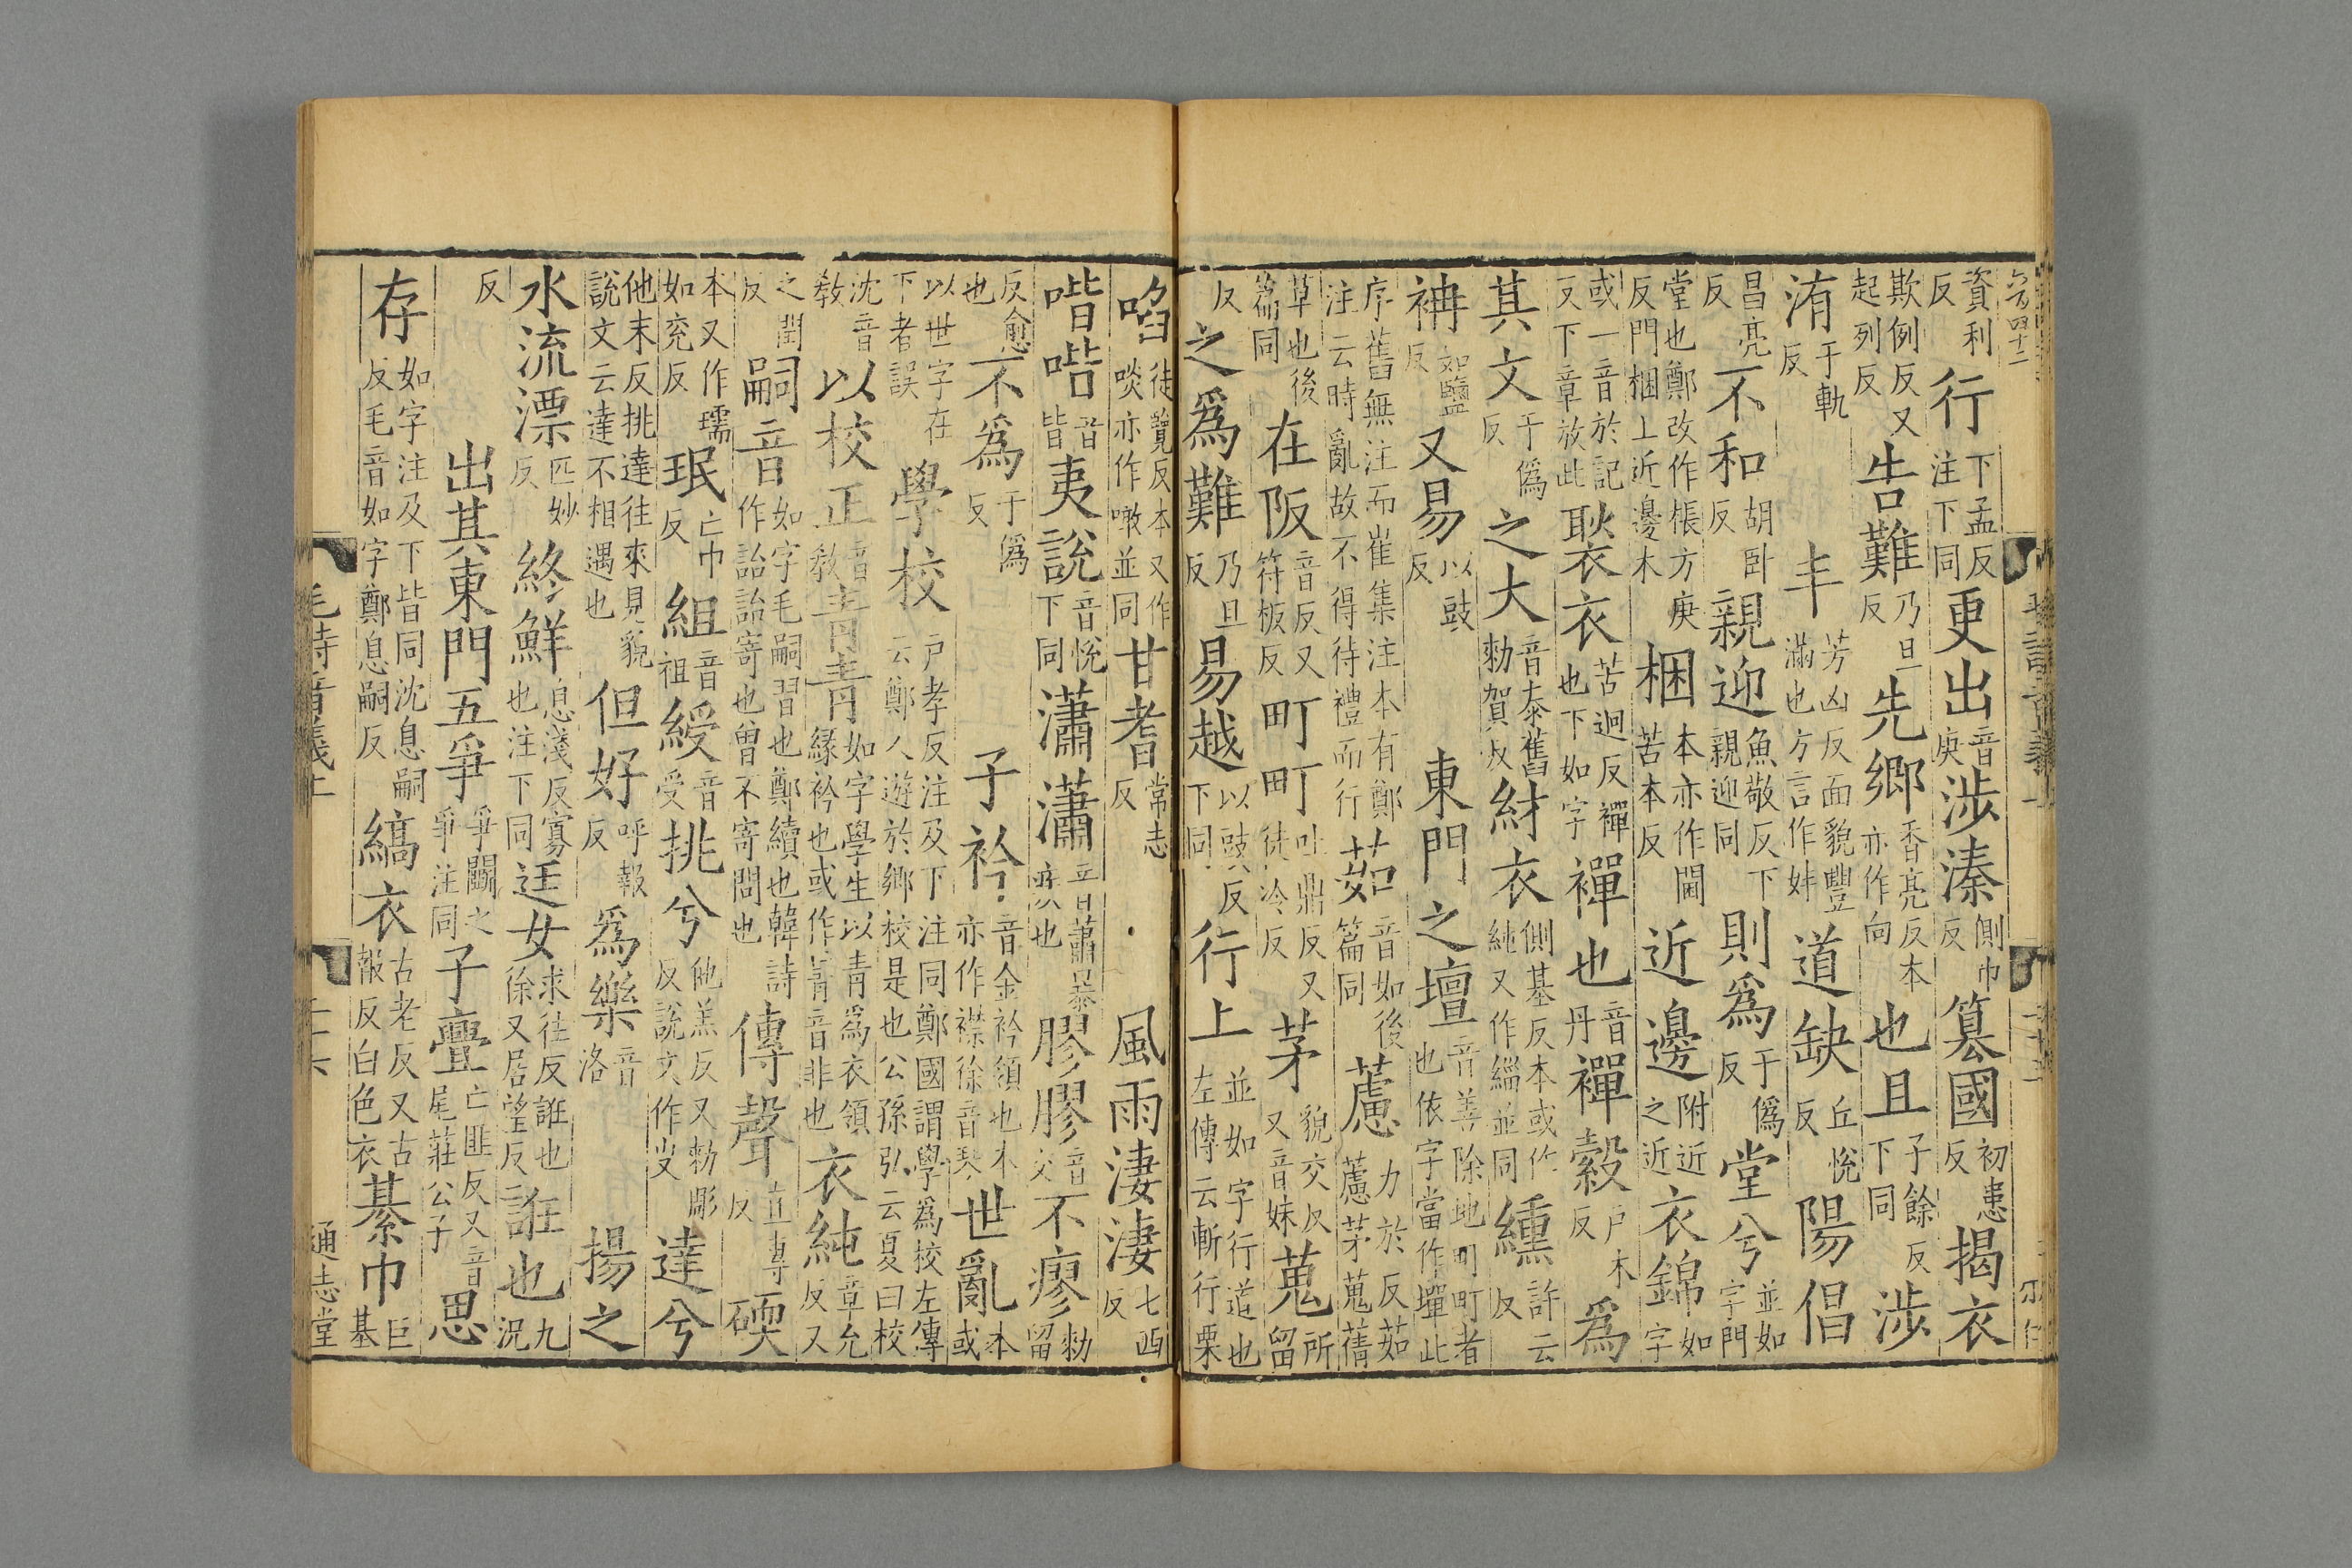 資利反行下孟反注下同更出音庚涉溱側巾反篡國初患反揭衣
欺例反又起列反告難乃旦反先鄉香亮反本亦作向也且子餘反下同涉
洧于軌反丰芳凶反面貌豐滿也方言作妦道缺丘悅反陽倡
昌亮反不和胡卧反親迎魚敬反下親迎同則爲于僞反堂兮並如字門
堂也鄭改作棖方庚反門梱上近邊木梱本亦作閫苦本反近邊附近之近衣錦如字
或一音於記反下章放此褧衣苦迥反襌也下如字襌也音丹襌縠戶木反爲
其文于僞反之大音泰舊勑賀反紂衣側基反本或作純又作緇並同纁許云反
袡如鹽反又易以豉反東門之壇音善除地町町者也依字當作墠此
序舊無注而崔集注本有鄭注云時亂故不得待禮而行茹音如後篇同藘力於反茹藘茅蒐蒨
草也後篇同在阪音反又符板反町町吐鼎反又徒冷反茅貌交反又音妹蒐所留
反之爲難乃旦反易越以豉反下同行上並如字行道也左傳云斬行栗
啗徒覽反本又作啖亦作噉並同甘耆常志反風雨淒淒七西反
喈喈音皆夷說音悅下同瀟瀟音蕭暴疾也膠膠音交不瘳勑留
反愈也不爲于僞反子衿音金衿領也本亦作襟徐音琴世亂本或
以世字在下者誤學校戶孝反注及下注同鄭國謂學爲校左傳云鄭人遊於鄉校是也公孫弘云夏曰校
沈音教以校正音教青青如字學生以青爲衣領緣衿也或作菁音非也衣純章允反又
之閏反嗣音如字毛嗣習也鄭續也韓詩作詒詒寄也曾不寄問也傳聲直專反碝
本又作瓀如兖反珉亡巾反組音祖綬音受挑兮他羔反又勑彫反說文作㕞達兮
他末反挑達往來見貌說文云達不相遇也但好呼報反爲樂音洛揚之
水流漂匹妙反終鮮息淺反寡也注下同迋女求往反誑也徐又居望反誑也九況
反出其東門五爭爭鬭之爭注同子亹亡匪反又音尾莊公子思
存如字注及下皆同沈息嗣反毛音如字鄭息嗣反縞衣古老反又古報反白色衣綦巾巨基
毛詩音義上
通志堂